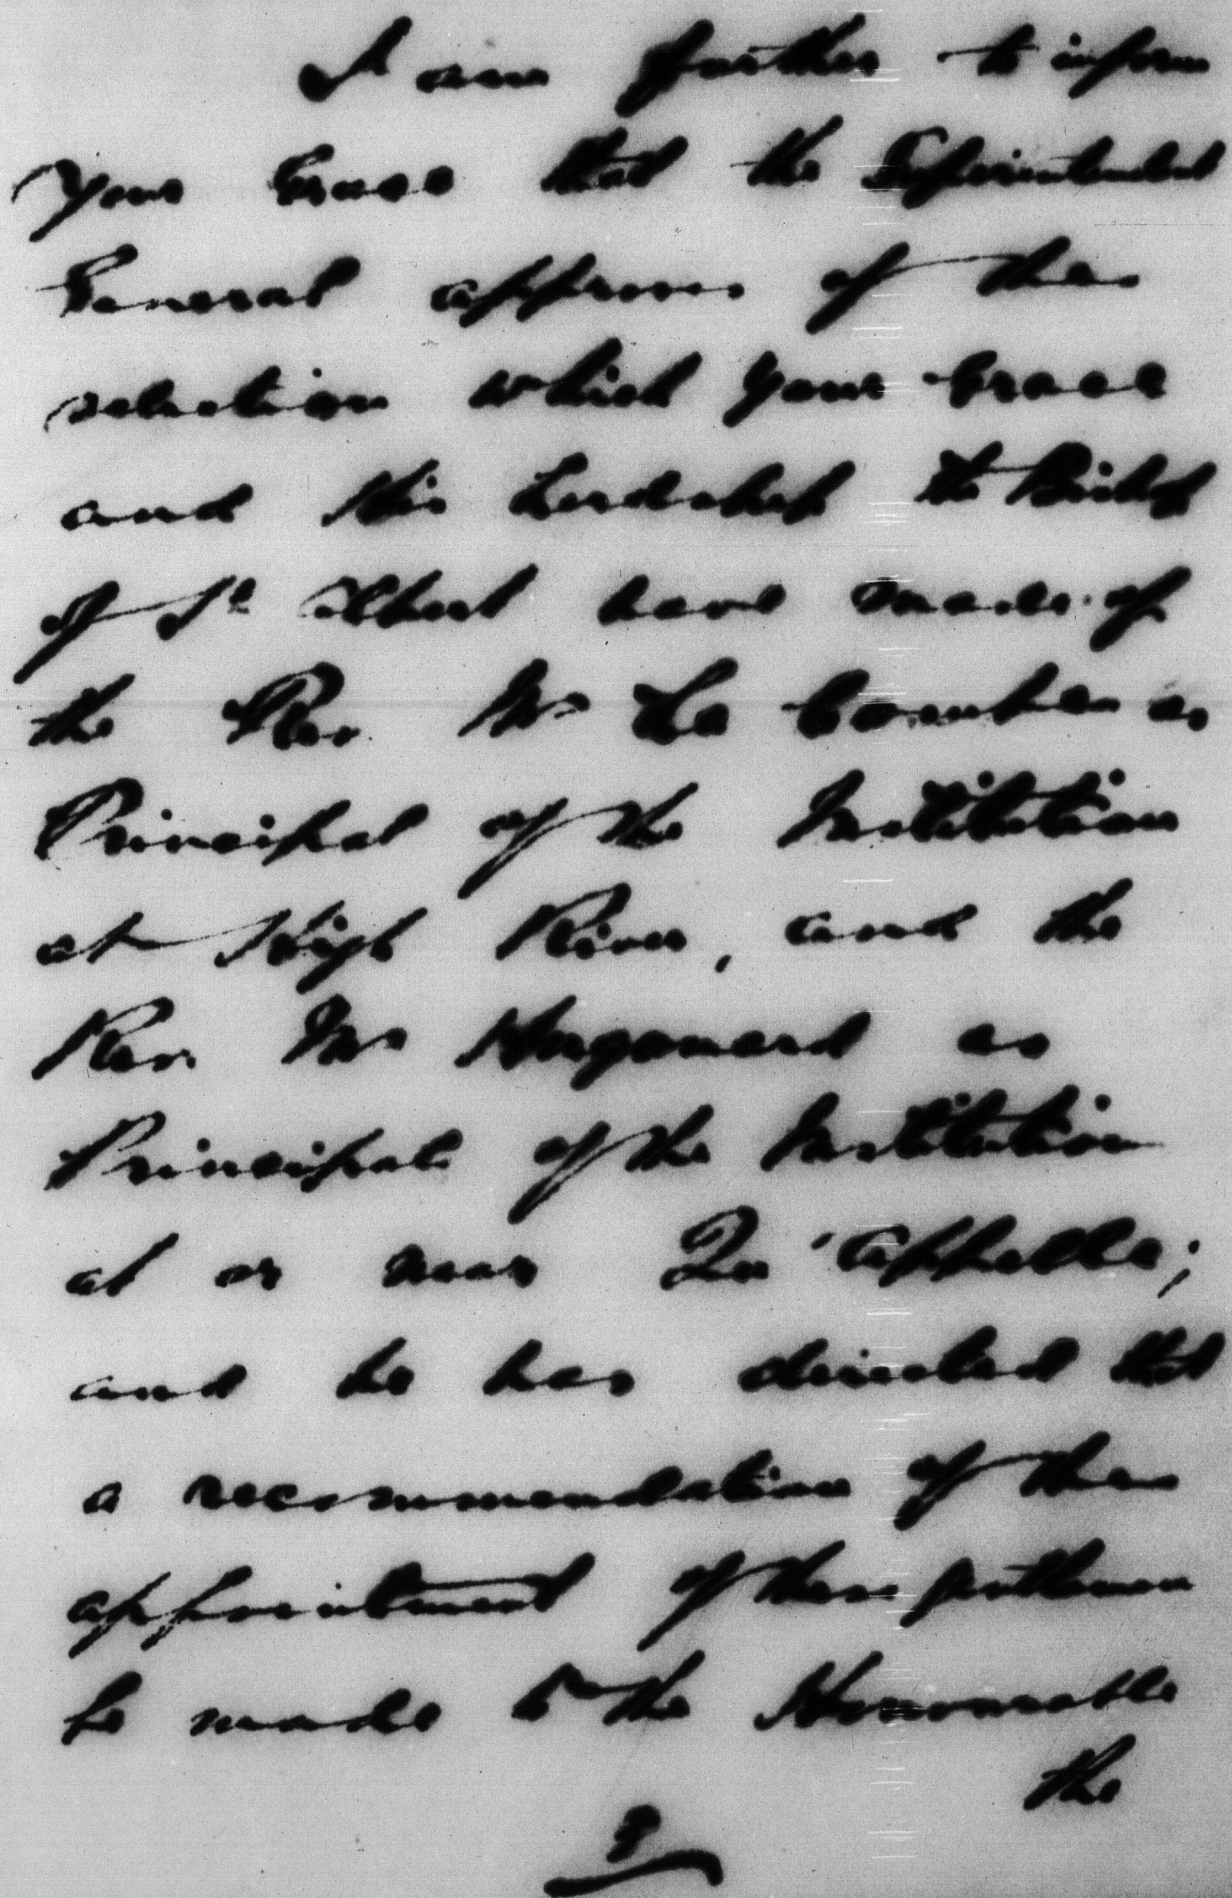 I am further to inform
Your Grace that the Superintendent
General approves of the
selection which Your Grace
and His Lordship the Bishop
of St Albert have made of
the Rev. Mr La Combe as
Principal of the Institution
at High River, and the
Rev. Mr Hugonard as
Principal of the Institution
at or near Qu'Appelle;
and he has directed that
a recommendation of the
appointment of these gentlemen
be made to the Honourable
the